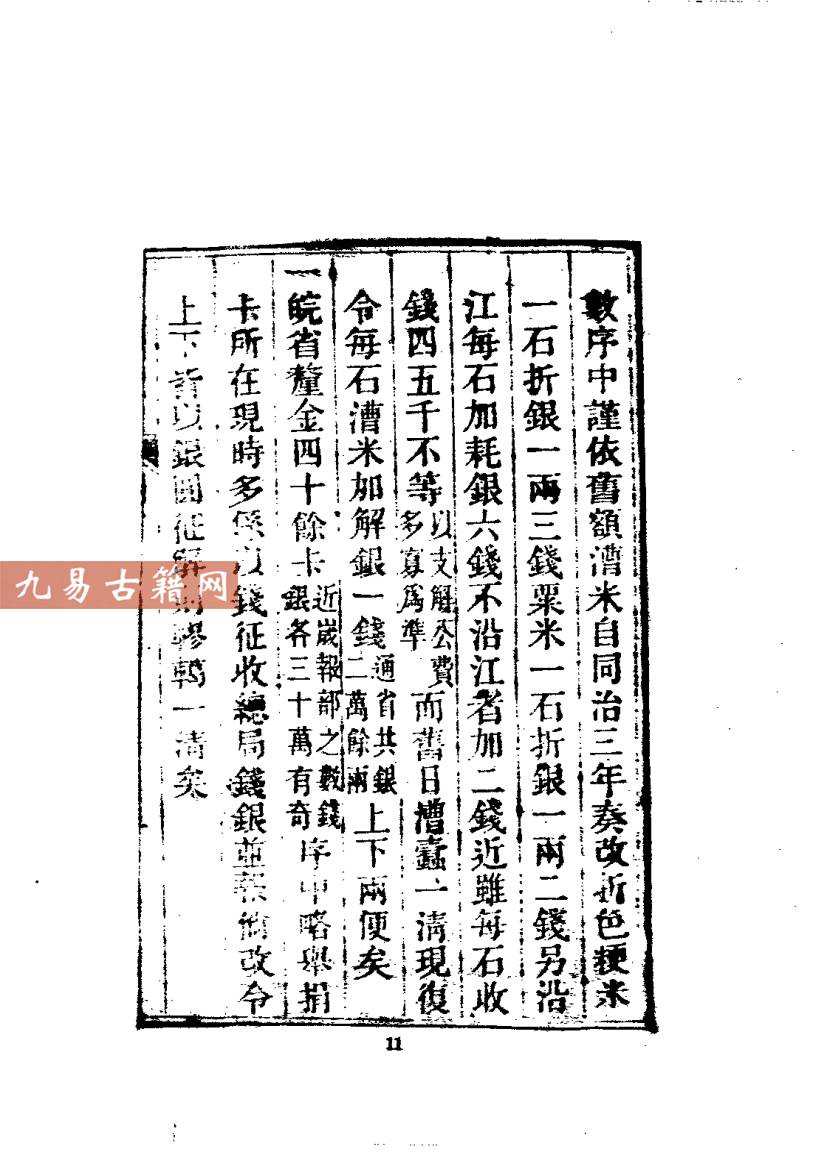 數序中謹依舊額漕米自同治三年奏改折色粳米
一石折銀一兩三錢粟米一石折銀一兩二錢另沿
江每石加耗銀六錢不沿江者加二錢近雖每石收
錢四五千不等以支解公費多寡爲準而舊日漕蠹一清現復
令每石漕米加解銀一錢通省共銀二萬餘兩上下兩便矣
一皖省釐金四十餘卡近歲報部之數錢銀各三十萬有奇序中略舉捐
卡所在現時多係以錢征收總局錢銀並報倘改令
上下皆以銀圓征解則轇轕一清矣
九易古籍网
11